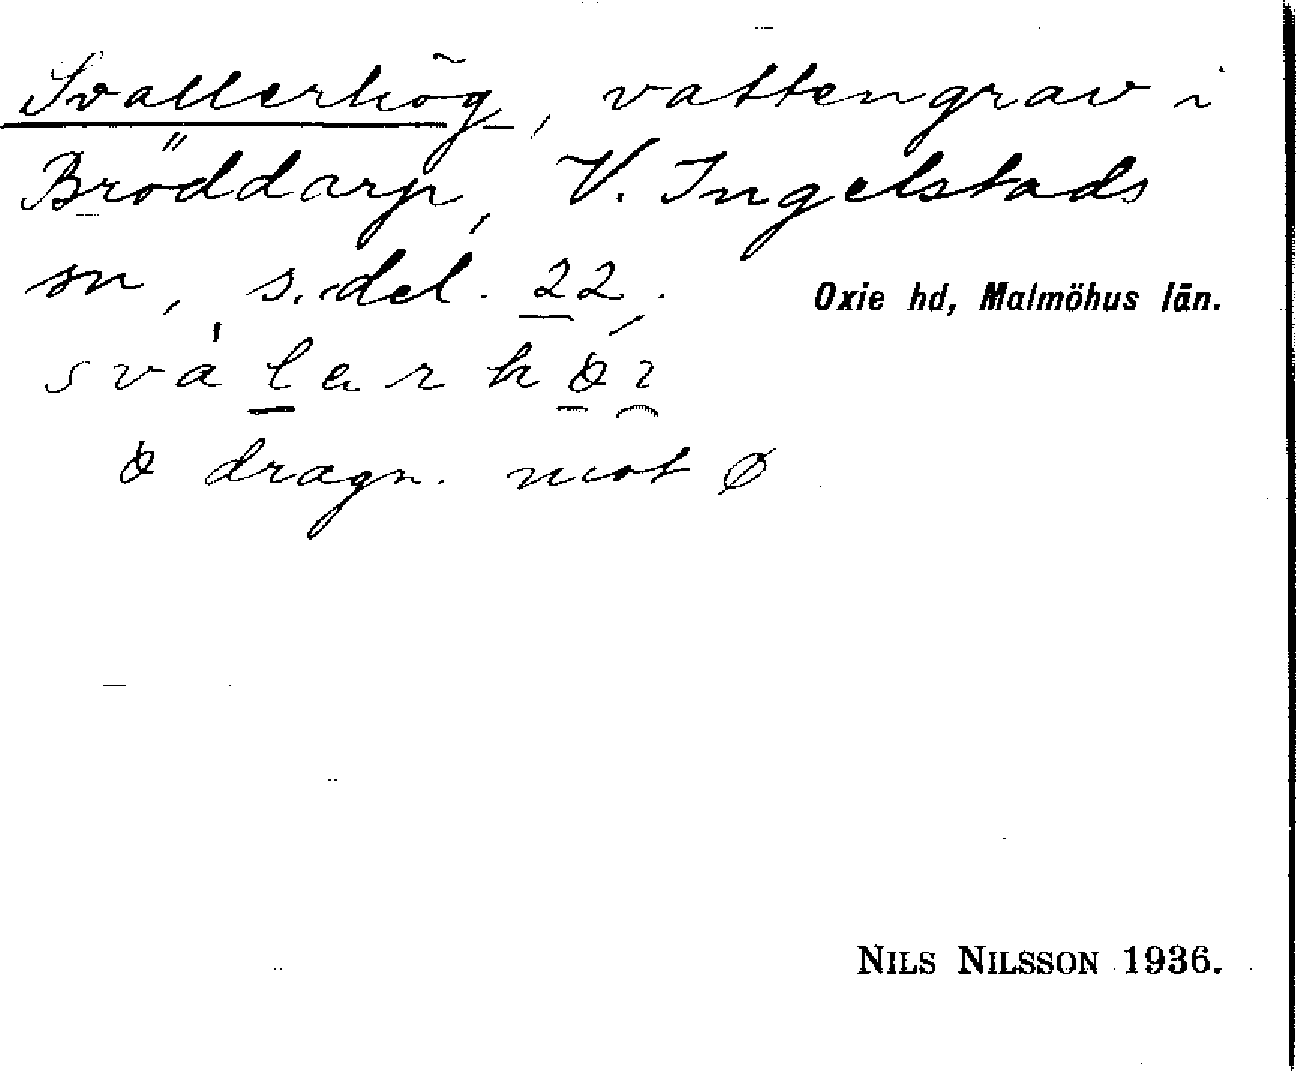 Svallerhög, vattengrav i
Bröddarp, V. Ingelstads
sn, s. del. 22.
Oxie hd, Malmöhus län.
dragn. mot ø
NILS NILSSON 1936.